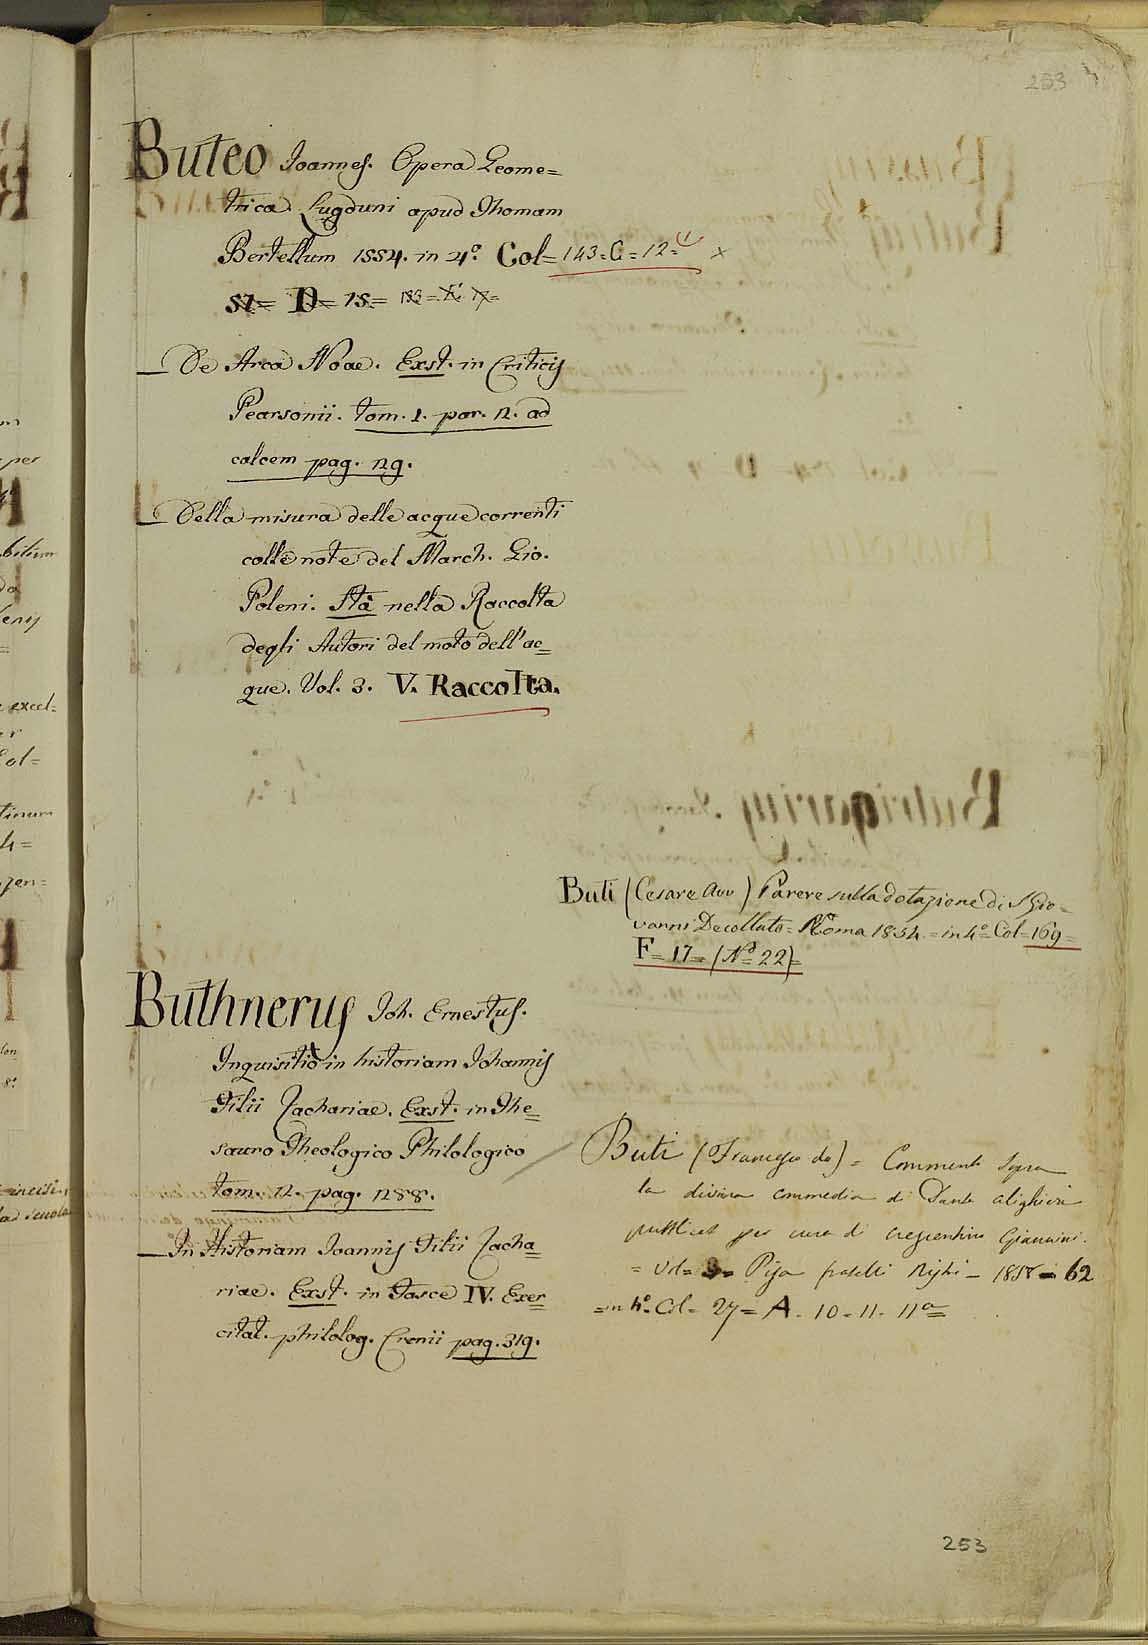 253
Buteo Joannes. Opera Geome=
trica. Lugduni apud Thomam
Bertellum 1554. in 4.° Col=143=C=12= (1) x
51= D= 15= 193= E= 17=
— De Arca Noae. Exst. in Criticis
Pearsonii. tom. 1. par. 2. ad
calcem pag. 29.
— Della misura delle acque correnti
colle note del March. Gio.
Poleni. Stà nella Raccolta
degli Autori del moto dell'ac=
que. Vol. 3. V. Raccolta.
Buti (Cesare Avv) Parere sulla dotazione di S Gio=
vanni Decollato= Roma 1854.=in 4°=Col=169=
F=17=(N° 22)=
Buthnerus Joh. Ernestus.
Inquisitio in historiam Johannis
Filii Zachariae. Exst. in The=
sauro Theologico Philologico
tom. 2. pag. 288.
— In Historiam Joannis Filii Zacha=
riae. Exst. in Fasce IV. Exer=
citat. philolog. Crenii pag. 319.
Buti (Francesco da) = Commento sopra
la divina commedia di Dante alighieri
pubblicat per cura di crescentino Giannini.
= Vol= 3= Pisa fratelli Nistri — 1858 — 62
=in 4°. Col= 27= A. 10=11. 11a=
253